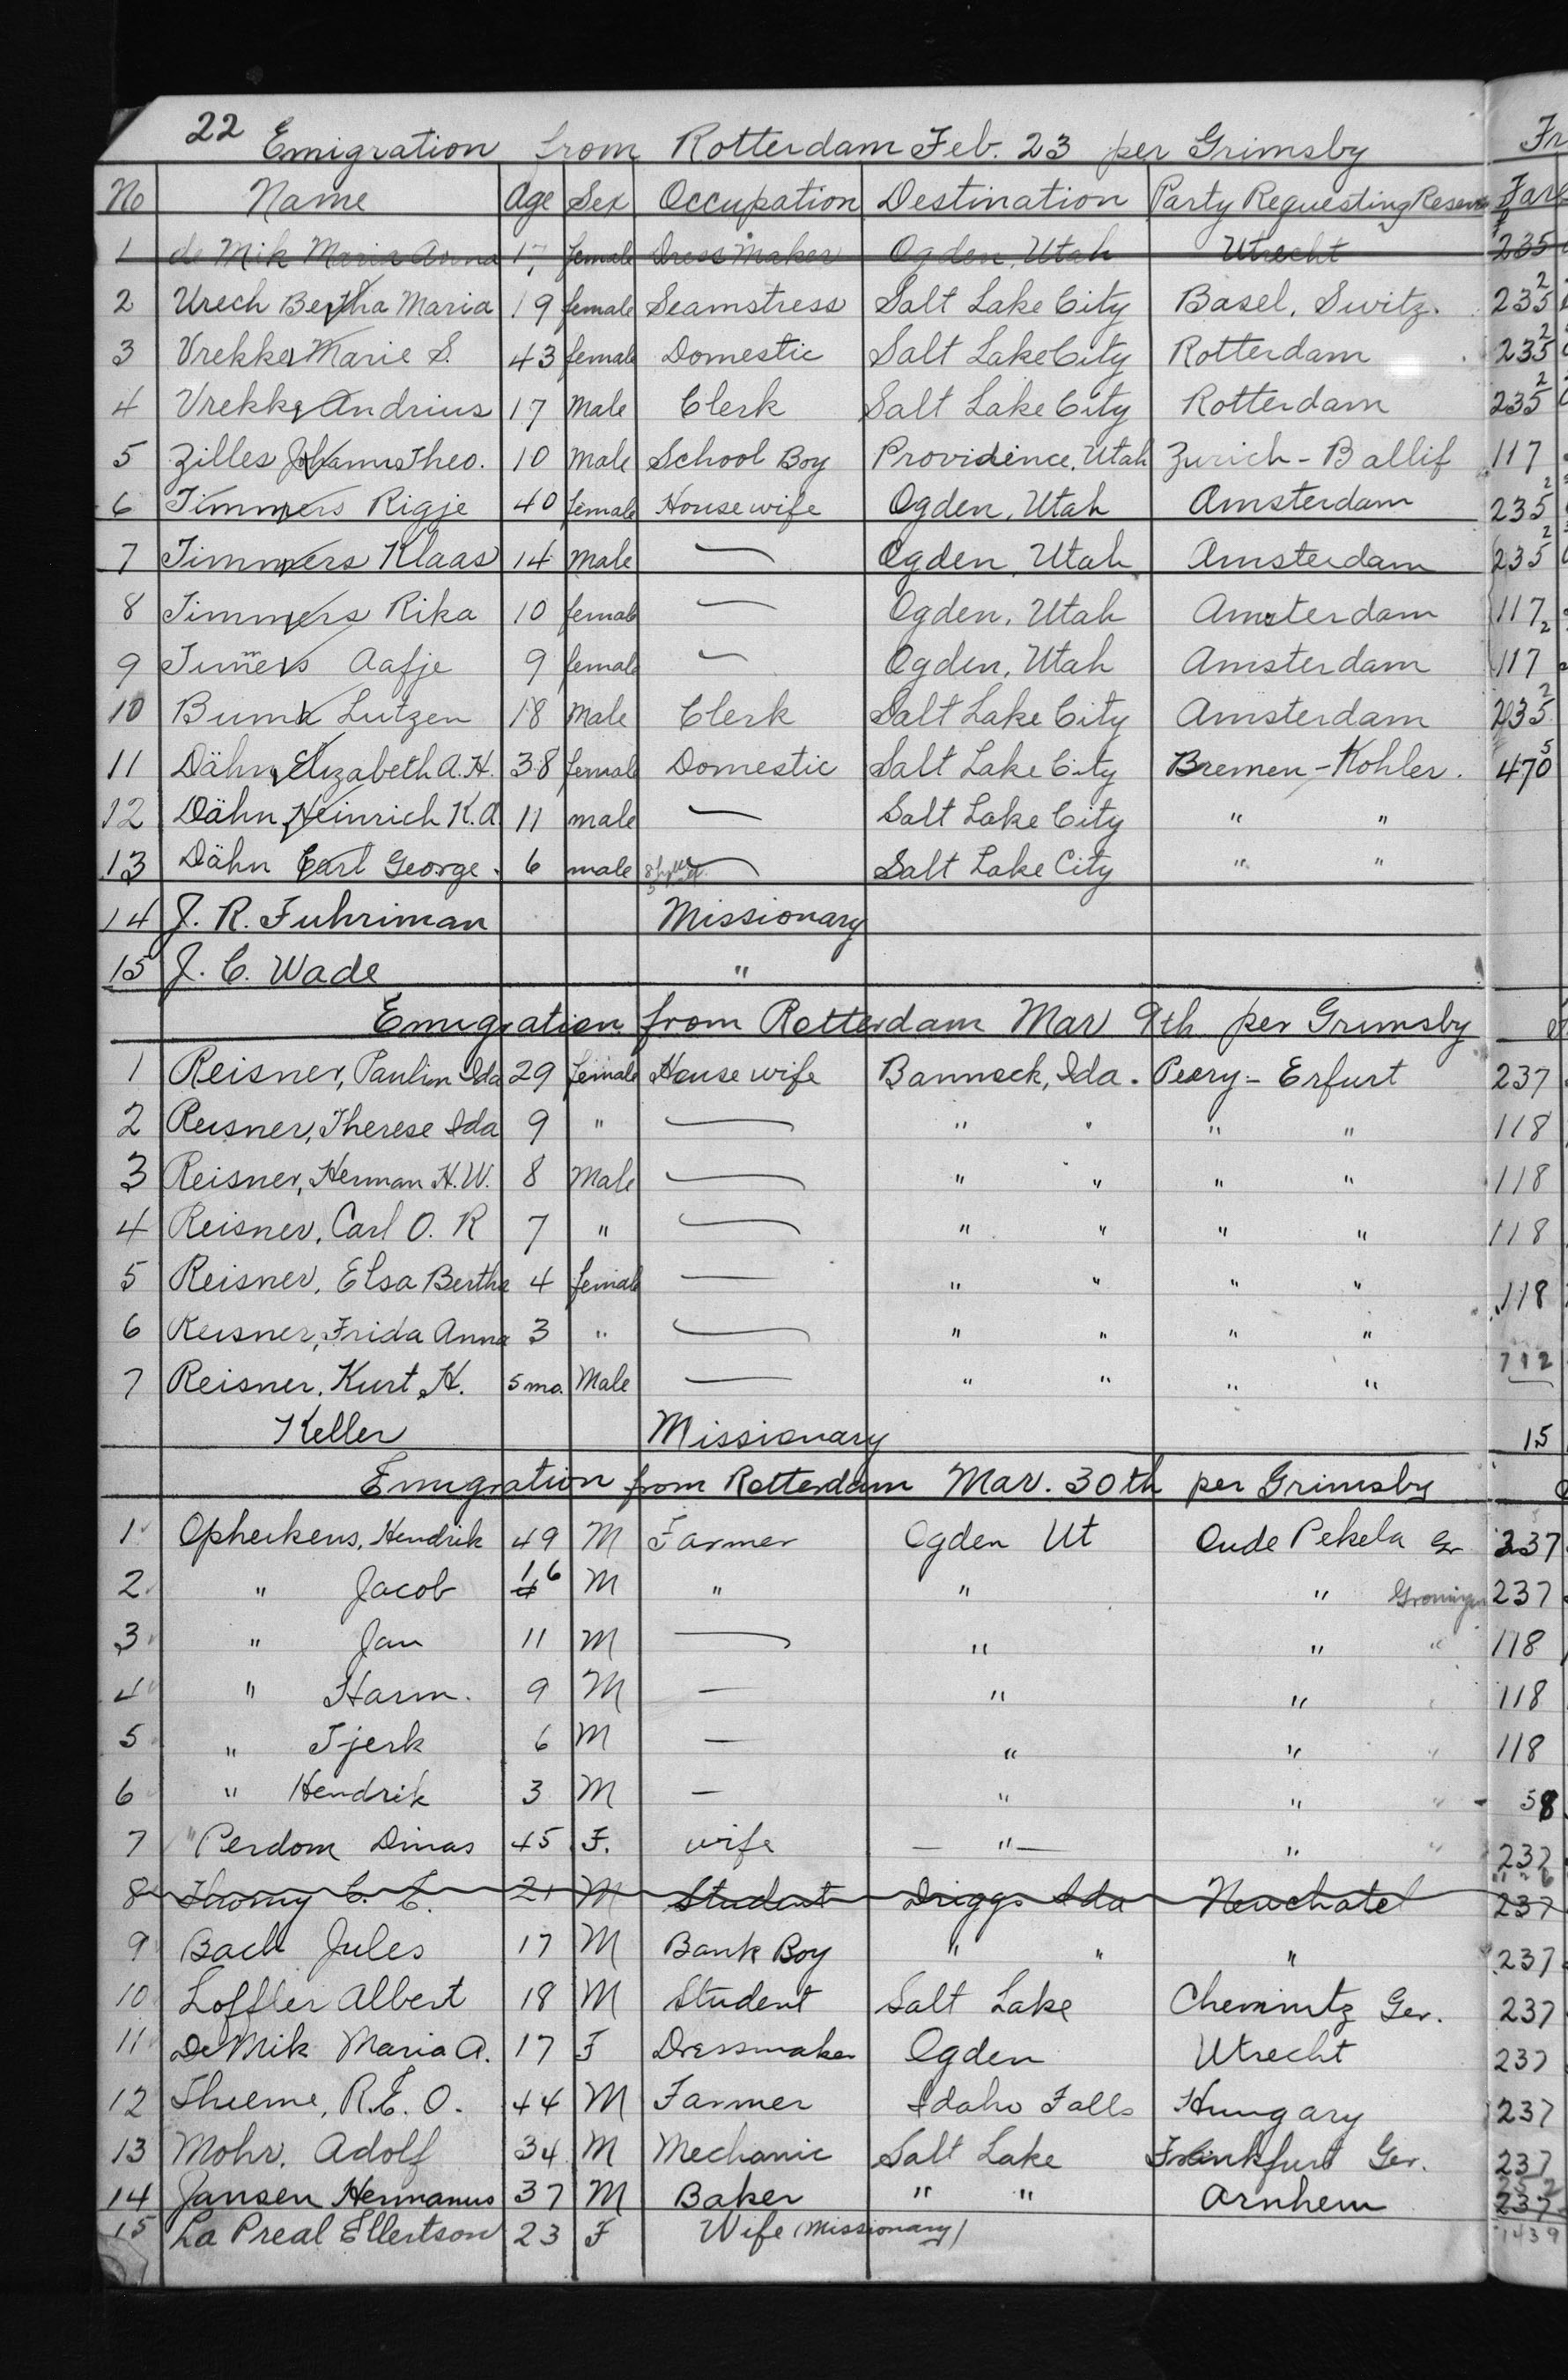 22 Emigration from Rotterdam Feb. 23 per Grimsby
No Name Age Sex Occupation Destination Party Requesting Reserv
1 de Mik Maria Anna 17 female Dress Maker Ogden, Utah Utrecht 235
2 Urech Bertha Maria 19 female Seamstress Salt Lake City Basel, Switz. 235 2
3 Vrekker Marie S. 43 female Domestic Salt Lake City Rotterdam 235 2
4 Vrekke Andrius 17 Male Clerk Salt Lake City Rotterdam 235 2
5 Zilles Theo. 10 Male School Boy Providence, Utah Zurich - Ballif 117
6 Timmers Rigje 40 female Housewife Ogden, Utah Amsterdam 235 2
7 Timmers Klaas 14 Male — Ogden, Utah Amsterdam 235 2
8 Timmers Rika 10 female — Ogden, Utah Amsterdam 117 2
9 Timers Aafje 9 female — Ogden, Utah Amsterdam 117
10 Buma Lutzen 18 Male Clerk Salt Lake City Amsterdam 235 2
11 Dähn, Elizabeth A. H. 38 female Domestic Salt Lake City Bremen - Kohler. 470 5
12 Dähn, Heinrich K. A 11 male — Salt Lake City " "
13 Dähn Carl George. 6 male — Salt Lake City " "
14 J. R. Fuhriman Missionary
15 J. C. Wade "
Emigration from Rotterdam Mar 9th per Grimsby
1 Reisner, Paulin Ida 29 female House wife Bannock, Ida. Peery - Erfurt 237
2 Reisner, Therese Ida 9 " — " " " " 118
3 Reisner, Herman H. W. 8 Male — " " " " 118
4 Reisner, Carl O. R 7 " — " " " " 118
5 Reisner, Elsa Bertha 4 female — " " " " 118
6 Reisner, Frida Anna 3 " — " " " "
712
7 Reisner, Kurt H. 5 mo. Male — " " " "
Keller Missionary 15
Emigration from Rotterdam Mar. 30th per Grimsby
1 Opheikens, Hendrik 49 M Farmer Ogden Ut Oude Pekela Gr 237
2 " Jacob 16 M " " " Groningen 237
3 " Jan 11 M — " " " 118
4 " Harm. 9 M — " " 118
5 " Tjerk 6 M — " " " 118
6 " Hendrik 3 M — " " " 58
7 " Perdom Dinas 45 F. wife — " — " " 237
8 C. E. 21 M Student Driggs Ida Neuchatel 237
9 Bach Jules 17 M Bank Boy " " " 237
10 Loffler Albert 18 M Student Salt Lake Chemnitz Ger. 237
11 De Mik Maria A. 17 F Dressmaker Ogden Utrecht 237
12 Thieme, R. E. O. 44 M Farmer Idaho Falls Hungary 237
13 Mohr, Adolf 34 M Mechanic Salt Lake Frankfurt Ger. 237
14 Jansen Hermanus 37 M Baker " " Arnhem 237
15 La Preal Ellertson 23 F Wife (Missionary)